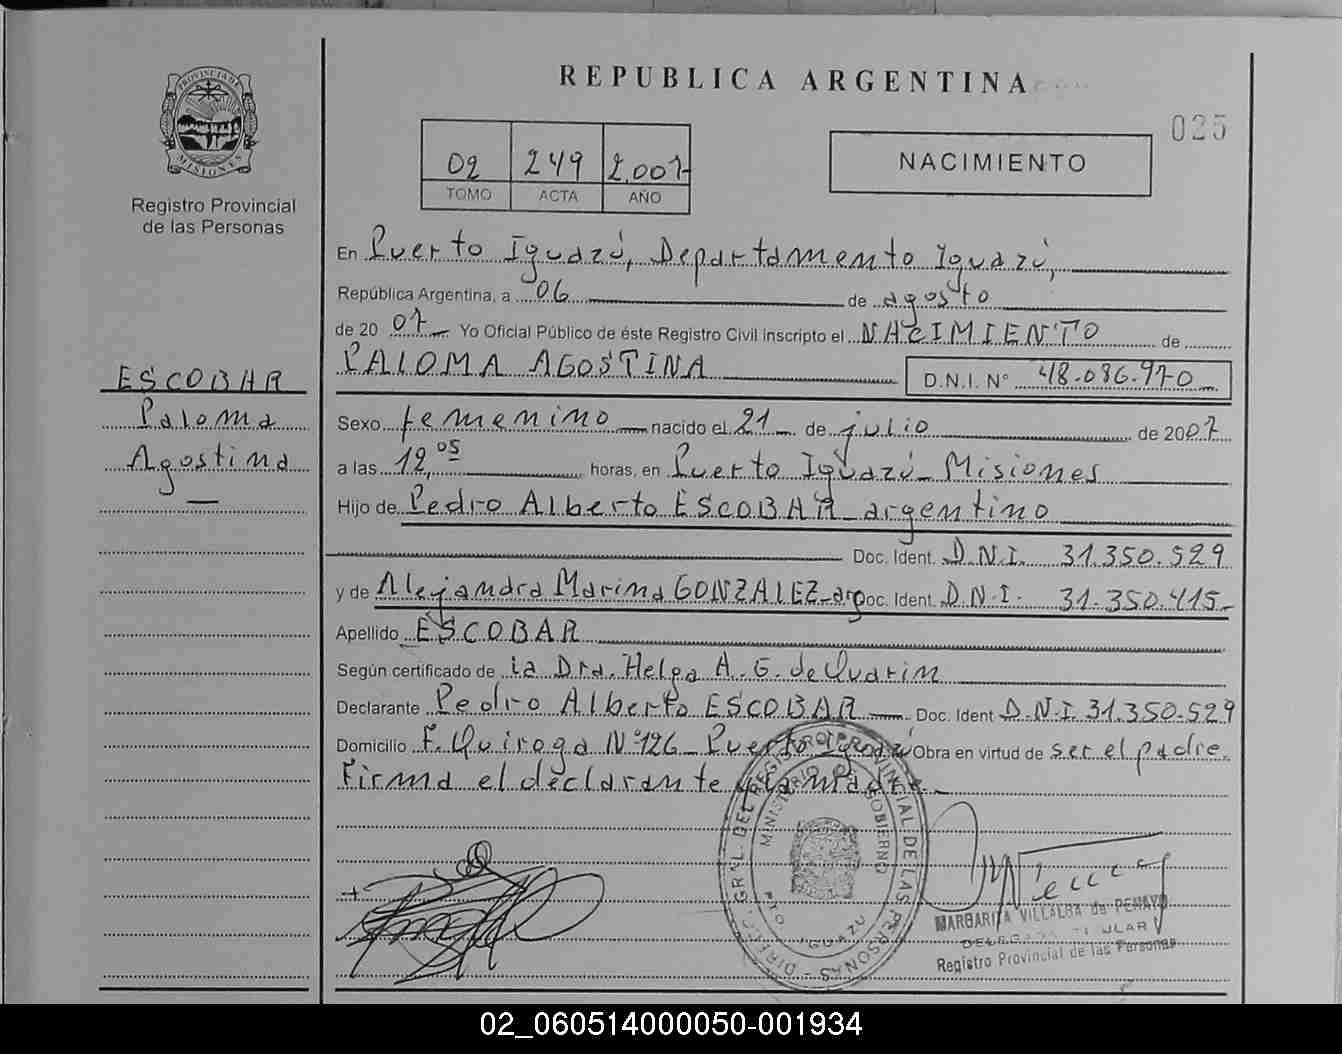 REPUBLICA ARGENTINA
025
PROVINCIA DE
MISIONES
Registro Provincial
de las Personas
02 249 2.007
TOMO ACTA AÑO
NACIMIENTO
En Puerto Iguazú, Departamento Iguazú,
República Argentina, a 06 de agosto
de 20 07 Yo Oficial Público de éste Registro Civil inscripto el NACIMIENTO de
PALOMA AGOSTINA D.N.I. N° 48.086.970
ESCOBAR
Paloma
Agostina
Sexo femenino nacido el 21 de julio de 2007
a las 12,05 horas, en Puerto Iguazú - Misiones
Hijo de Pedro Alberto ESCOBAR - argentino
Doc. Ident. D.N.I. 31.350.529
y de Alejandra Marina GONZALEZ - arg Doc. Ident. D.N.I. 31.350.415-
Apellido ESCOBAR
Según certificado de la Dra. Helga A. G. de Quarin
Declarante Pedro Alberto ESCOBAR Doc. Ident D.N.I. 31.350.529
Domicilio F. Quiroga N° 126 - Puerto Iguazú Obra en virtud de ser el padre.
Firma el declarante y la madre.-
DIRECC. GRAL. DEL REGISTRO PROVINCIAL DE LAS PERSONAS
MINISTERIO DE GOBIERNO
PTO. IGUAZU
MARGARITA VILLALBA de PENAYO
DELEGADA TITULAR
Registro Provincial de las Personas
02_060514000050-001934